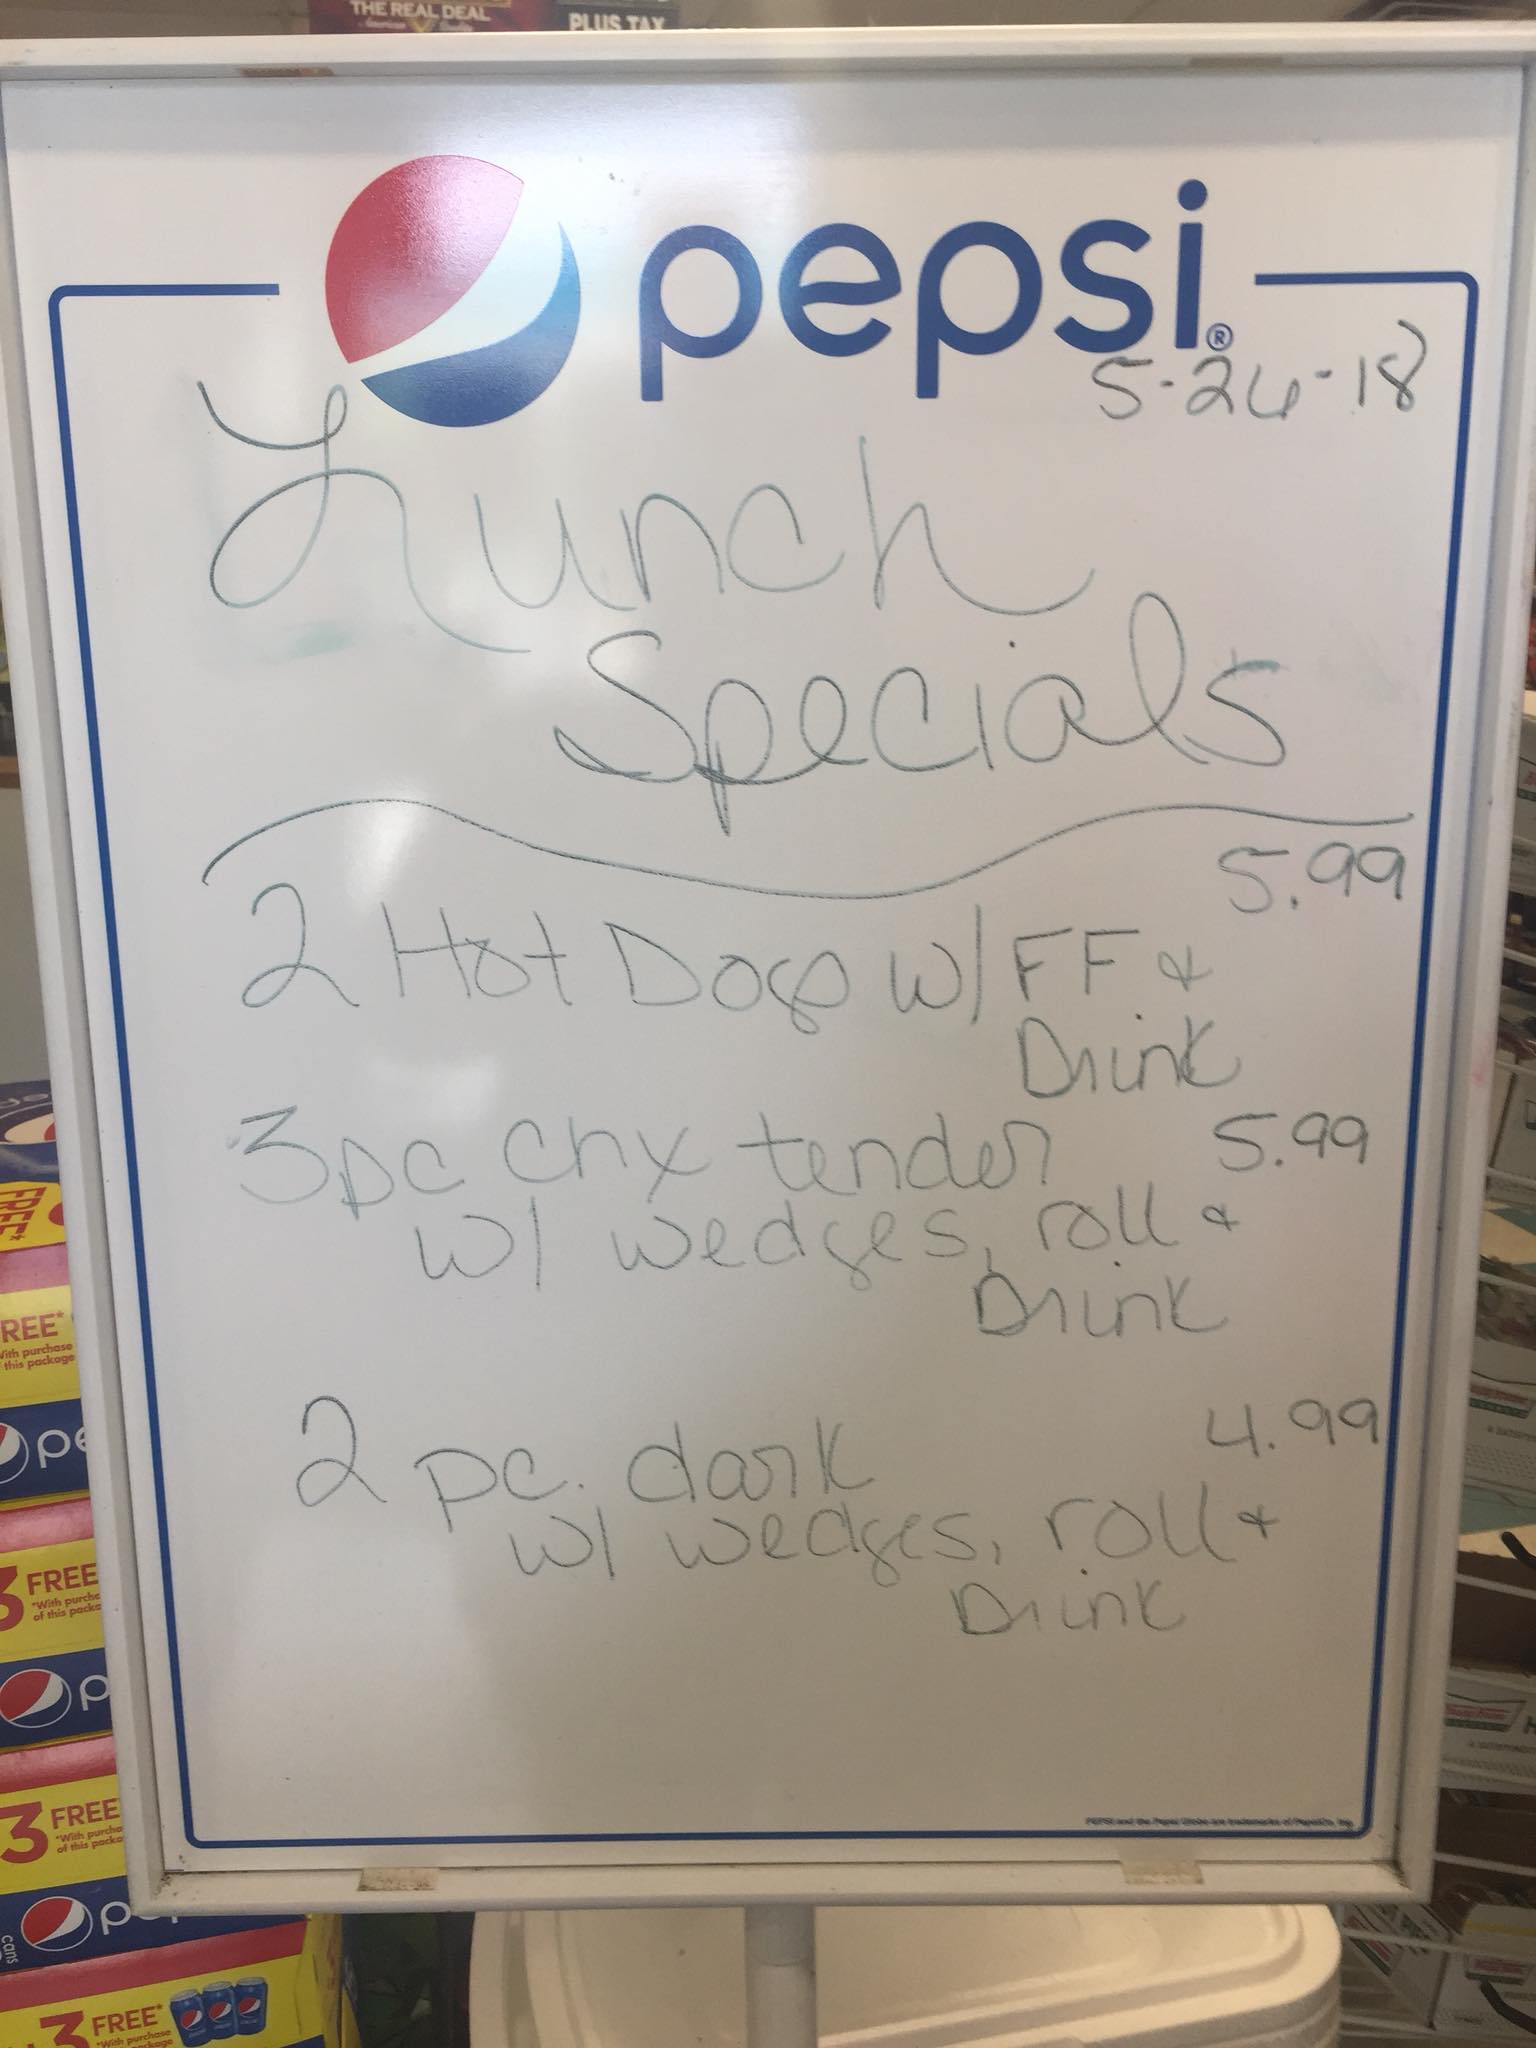 THE REAL DEAL
PLUS TAX
pepsi®
5-24-18
Lunch
Specials
5.99
2 Hot Dogs w/ FF &
Drink
3pc chx tender 5.99
w/ wedges, roll &
Drink
2 pc. dark 4.99
w/ wedges, roll &
Drink
PEPSI and the Pepsi Globe are trademarks of PepsiCo, Inc.
FREE*
REE*
With purchase
this package
pe
3 FREE
*With purcha
of this packa
p
3 FREE
*With purcha
of this packa
pepsi
cans
3 FREE*
*With purchase
package